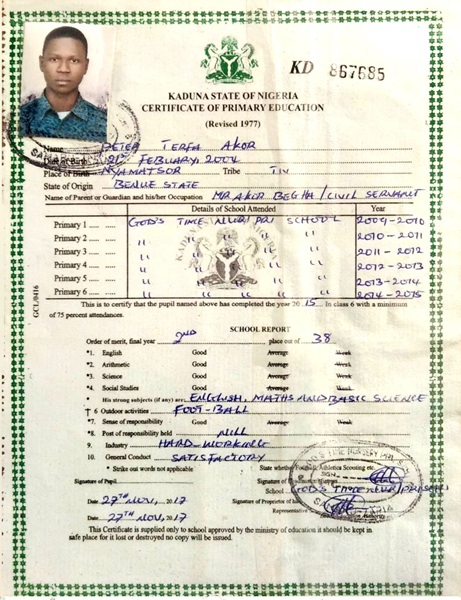 KADUNA STATE OF NIGERIA
KD 867685
CERTIFICATE OF PRIMARY EDUCATION
(Revised 1977)
Name PETER TERFA AKOR
Date of Birth 21st FEBRUARY, 2004
Place of Birth NYAMATSOR Tribe TIV
State of Origin BENUE STATE
Name of Parent or Guardian and his/her Occupation MR AKOR BEGHA/CIVIL SERVANT
Details of School Attended Year
Primary 1 GOD'S TIME NUR/PRI SCHOOL 2009-2010
Primary 2 " " " " 2010-2011
Primary 3 " " " " 2011-2012
Primary 4 " " " " 2012-2013
Primary 5 " " " " 2013-2014
Primary 6 " " " " 2014-2015
GCL/0416
This is to certify that the pupil named above has completed the year 2015. In class 6 with a minimum
of 75 percent attendances.
SCHOOL REPORT
Order of merit, final year 2nd place out of 38
*1. English Good Average Weak
*2. Arithmetic Good Average Weak
*3. Science Good Average Weak
*4. Social Studies Good Average Weak
* His strong subjects (if any) are: ENGLISH, MATHS AND BASIC SCIENCE
† 6 Outdoor activities FOOT-BALL
*7. Sense of responsibility Good Average Weak
*8. Post of responsibility held NILL
9. Industry HARD-WORKING
10. General Conduct SATISFACTORY
* Strike out words not applicable State whether Football, Athletics Scouting etc.
Signature of Pupil
School GOD'S TIME NUR/PRI
Date 27th NOV, 2017 Signature of Proprietor
Representative
Date 27th NOV, 2017
This Certificate is supplied only to school approved by the ministry of education it should be kept in
safe place for it lost or destroyed no copy will be issued.